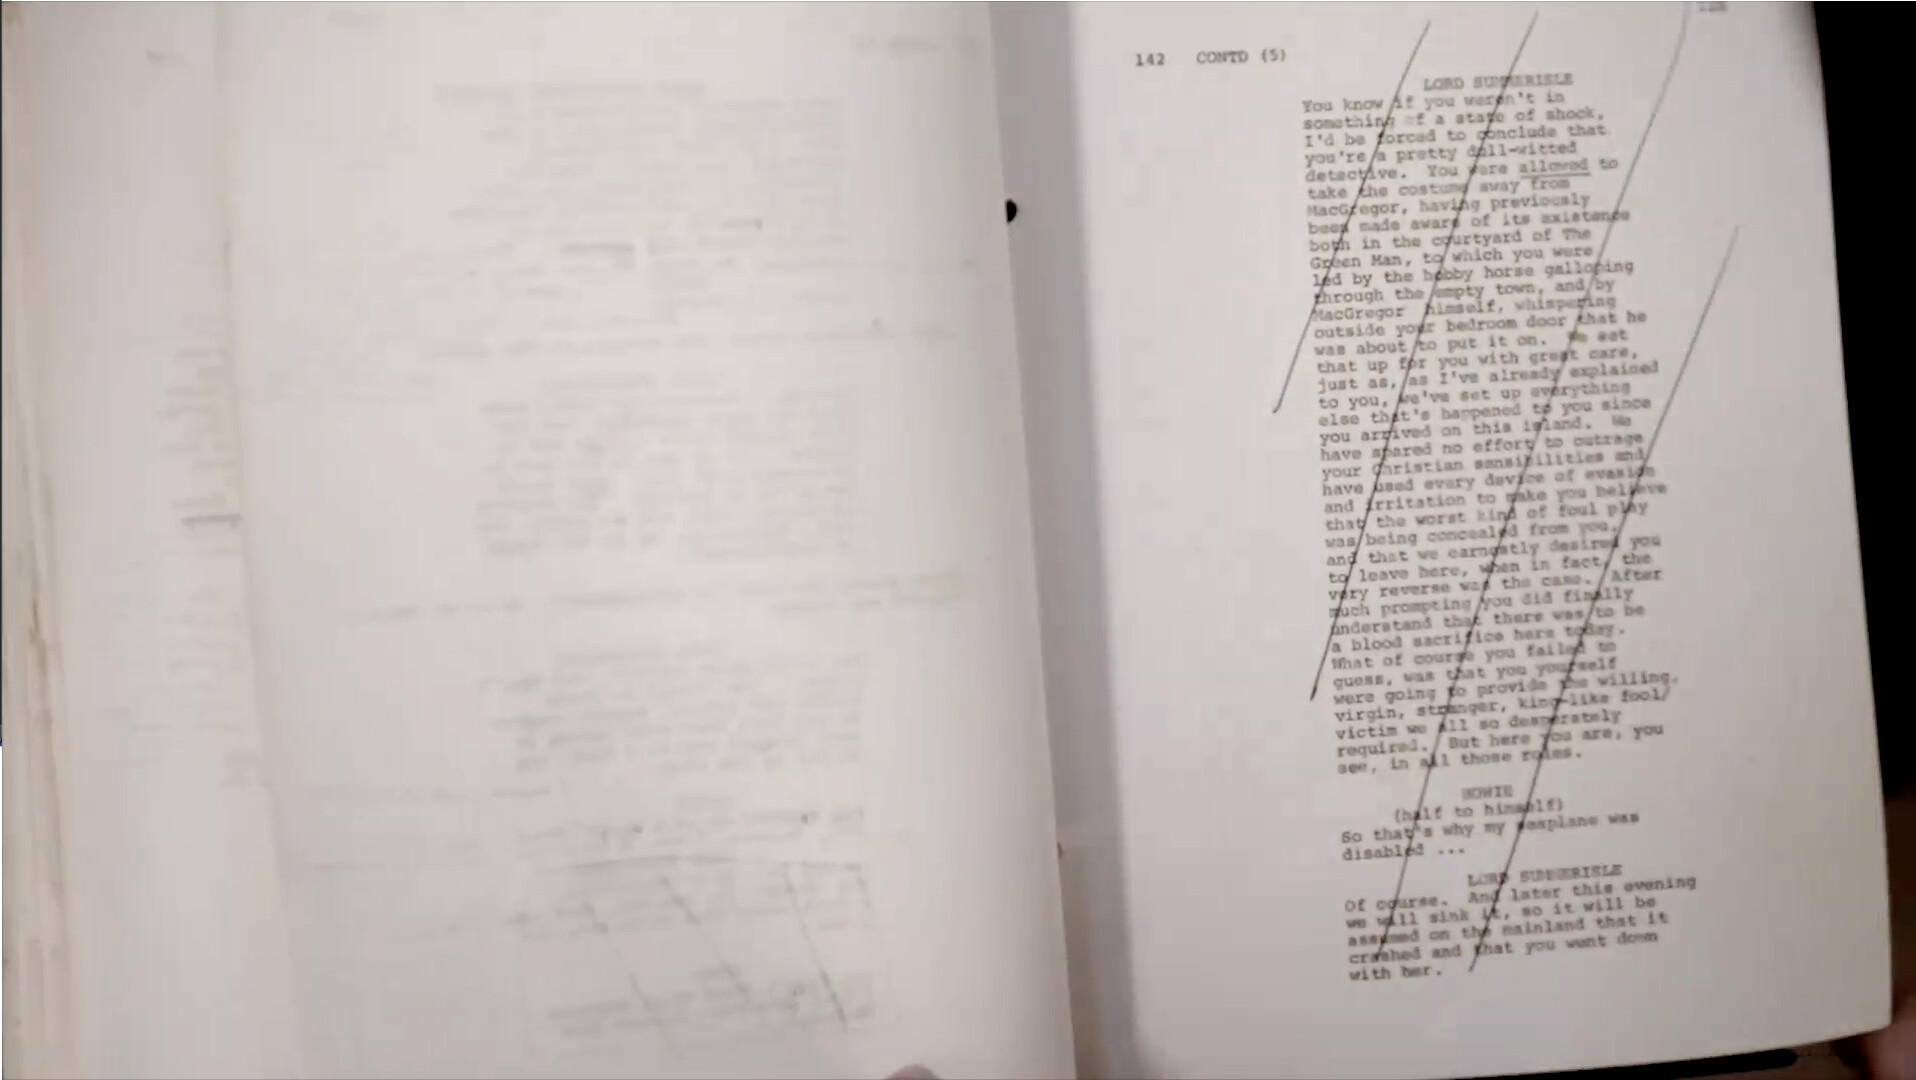 142 CONTD (5)
LORD SUMMERISLE
You know if you weren't in
something of a state of shock,
I'd be forced to conclude that
you're a pretty dull-witted
detective. You were allowed to
take the costume away from
MacGregor, having previously
been made aware of its existence
both in the courtyard of The
Green Man, to which you were
led by the hobby horse galloping
through the empty town, and by
MacGregor himself, whispering
outside your bedroom door that he
was about to put it on. We set
that up for you with great care,
just as, as I've already explained
to you, we've set up everything
else that's happened to you since
you arrived on this island. We
have spared no effort to outrage
your Christian sensibilities and
have used every device of evasion
and irritation to make you believe
that the worst kind of foul play
was being concealed from you,
and that we earnestly desired you
to leave here, when in fact, the
very reverse was the case. After
much prompting you did finally
understand that there was to be
a blood sacrifice here today.
What of course you failed to
guess, was that you yourself
were going to provide the willing,
virgin, stranger, king-like fool/
victim we all so desperately
required. But here you are, you
see, in all those roles.
HOWIE
(half to himself)
So that's why my seaplane was
disabled ...
LORD SUMMERISLE
Of course. And later this evening
we will sink it, so it will be
assumed on the mainland that it
crashed and that you went down
with her.